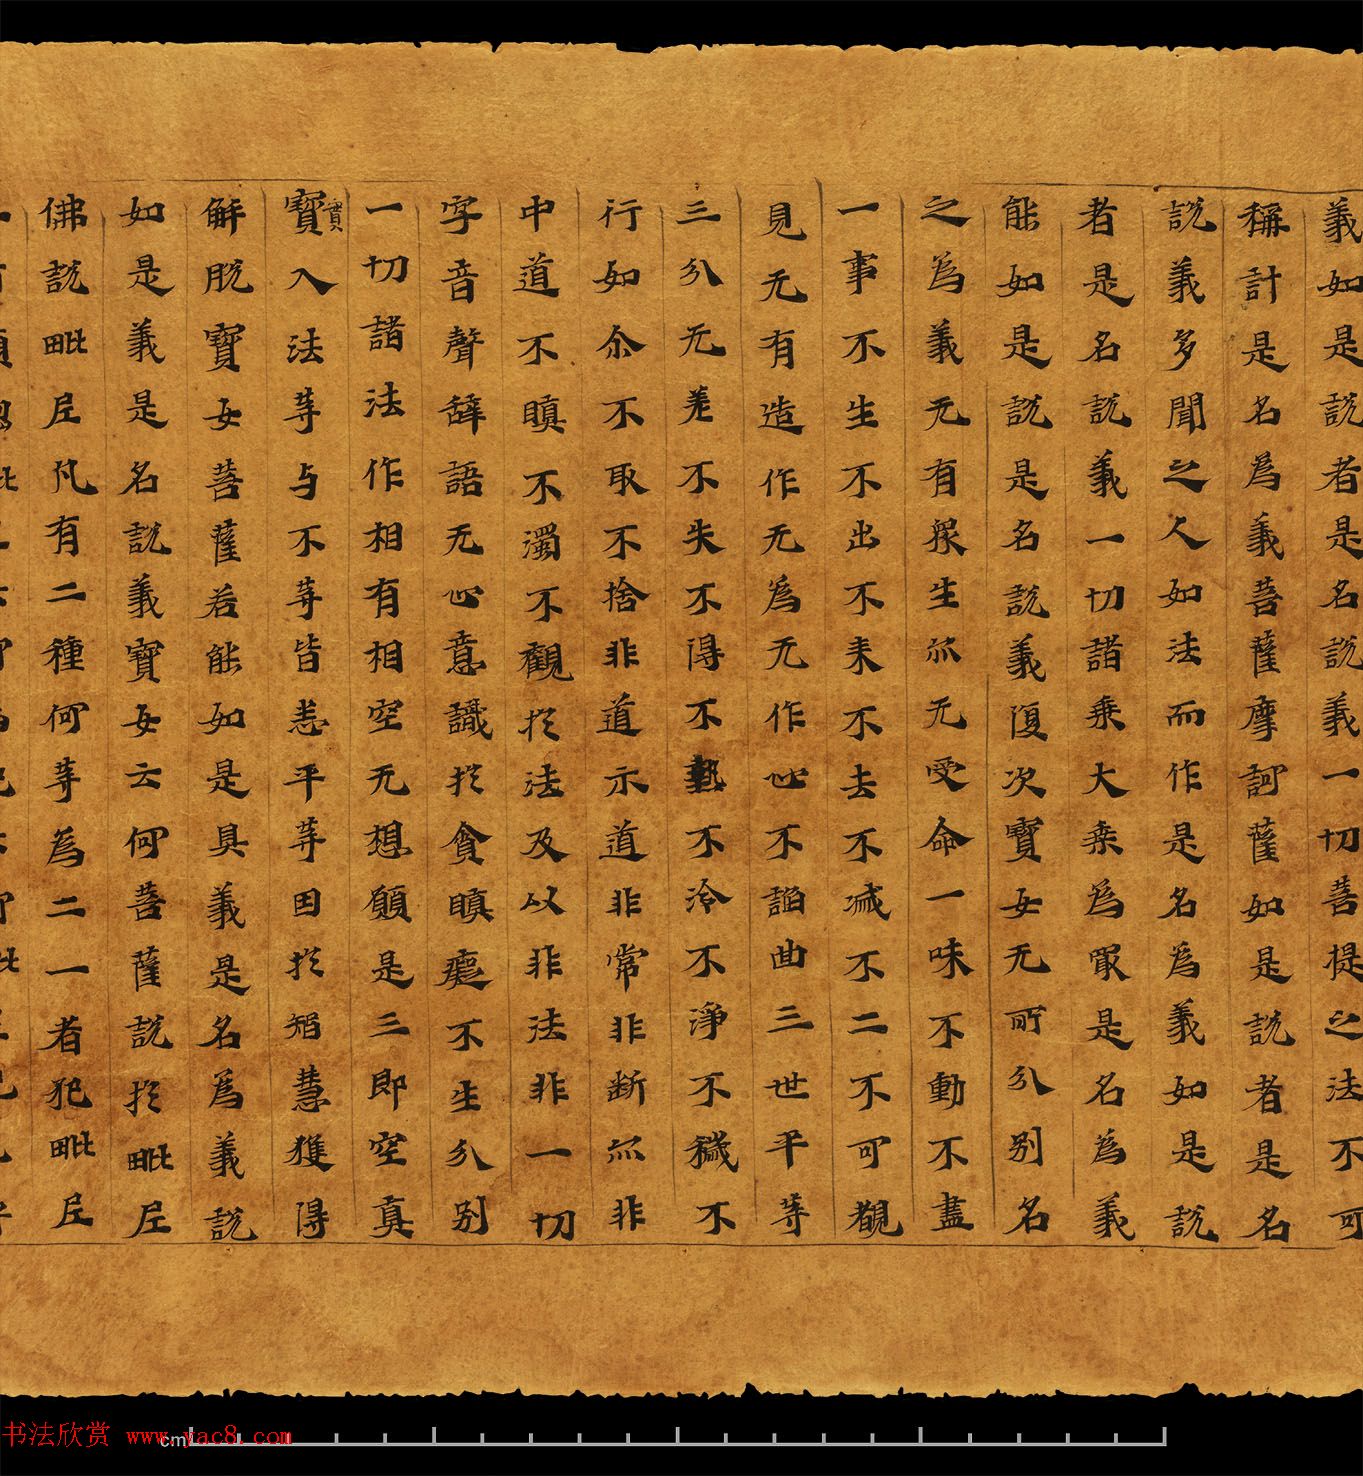 義如是説者是名説義一切菩提之法不可
稱計是名為義菩薩摩訶薩如是説者是名
説義多聞之人如法而作是名為義如是説
者是名説義一切諸乘大乘為眾是名為義
能如是説是名説義復次寶女无所分別名
之為義无有眾生亦无受命一味不動不盡
一事不生不出不来不去不减不二不可覩
見无有造作无為无作心不諂曲三世平等
三分无差不失不得不熱不冷不淨不穢不
行如尒不取不捨非道示道非常非断亦非
中道不瞋不濁不觀扵法及以非法非一切
字音聲辞語无心意識扵貪瞋癡不生分别
一切諸法作相有相空无想願是三即空真
寶實入法等与不等皆悉平等因扵智慧獲得
解脱寶女菩薩若能如是具義是名為義説
如是義是名説義寶女云何菩薩説扵毗尼
佛説毗尼凡有二種何等為二一者犯毗尼
书法欣赏 www.yac8.com
cm